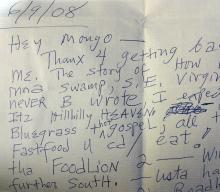 6/9/08
Hey Mongo —
Thanx 4 getting ba
Me. The story of How
mna swamp, S.E. Virgin
never B wrote I expec
Itz Hillbilly HEAVEN
Bluegrass n hot gospel, all t
Fastfood U cd/ eat.
tha FOODLION 2
further South.